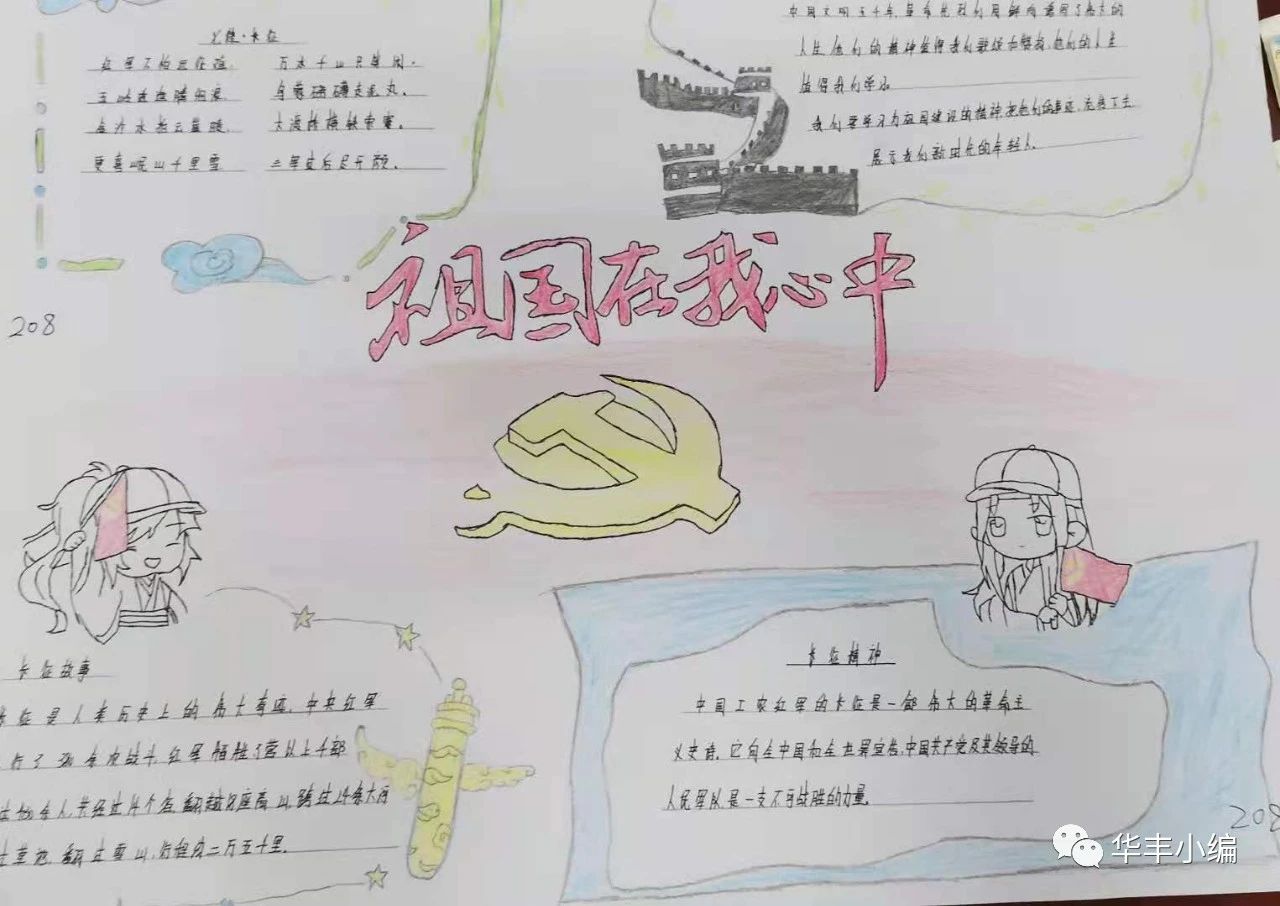 七律·长征
红军不怕远征难, 万水千山只等闲。
五岭逶迤腾细浪, 乌蒙磅礴走泥丸。
金沙水拍云崖暖, 大渡桥横铁索寒。
更喜岷山千里雪 三军过后尽开颜。
人生他们的精神值得我们歌颂和赞扬,他们的人生
值得我们学习
我们要学习为祖国建设的精神,把他们的事迹
展示我们新时代的年轻人.
祖国在我心中
208
长征故事
长征是人类历史上的伟大奇迹,中央红军
行了 余次战斗,红军牺牲了营以上干部
余人,共经过14个省,翻越18座高山,跨过24条大河
过草地,翻过雪山,行程约二万五千里.
长征精神
中国工农红军的长征是一部伟大的革命主
义史诗.它向全中国和全世界宣告,中国共产党及其领导的
人民军队,是一支不可战胜的力量.
208
华丰小编